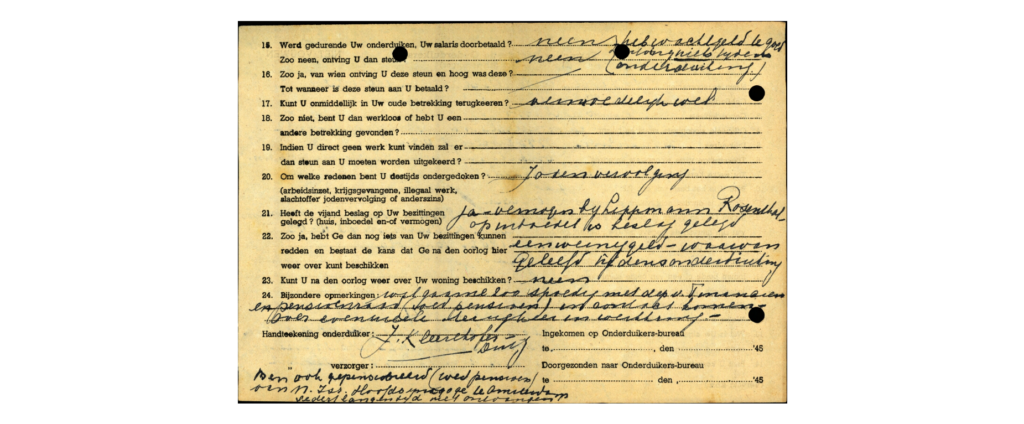 15. Werd gedurende Uw onderduiken, Uw salaris doorbetaald ? neen (heb wachtgeld te goed
Zoo neen, ontving U dan steun neen niets tijdens
16. Zoo ja, van wien ontving U deze steun en hoog was deze ? onderduiking.)
Tot wanneer is deze steun aan U betaald ?
17. Kunt U onmiddellijk in Uw oude betrekking terugkeeren ? vermoedelijk wel
18. Zoo niet, bent U dan werkloos of hebt U een
andere betrekking gevonden ?
19. Indien U direct geen werk kunt vinden zal er
dan steun aan U moeten worden uitgekeerd ?
20. Om welke redenen bent U destijds ondergedoken ? Jodenvervolging
(arbeidsinzet, krijgsgevangene, illegaal werk,
slachtoffer jodenvervolging of anderszins)
21. Heeft de vijand beslag op Uw bezittingen ja - vermogen by Lippmann Rosenthal,
gelegd ? (huis, inboedel en-of vermogen) op inboedel is beslag gelegd
22. Zoo ja, hebt Ge dan nog iets van Uw bezittingen kunnen
redden en bestaat de kans dat Ge na den oorlog hier een weinig geld - waarvan
weer over kunt beschikken geleefd tijdens onderduiking
23. Kunt U na den oorlog weer over Uw woning beschikken ? neen
24. Bijzondere opmerkingen: zoo spoedig met dep. v. Financien
en pensioenraad in contact komen
over eventueele
Handteekening onderduiker: J. Ingekomen op Onderduikers-bureau
te , den '45
verzorger : Doorgezonden naar Onderduikers-bureau
Ben ook gepensioneerd (wed pensioen) te den '45
van N. Isr. Hoofdsynagoge te Amsterdam
niet ontvangen